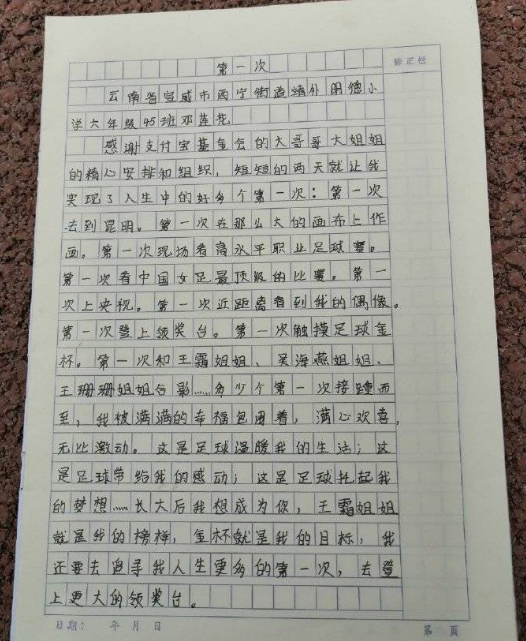 第一次
修正栏
云南省宣威市西宁街道靖外明德小
学六年级45班邓莲花
感谢支付宝基金会的大哥哥大姐姐
的精心安排和组织，短短的两天就让我
实现了人生中的好多个第一次：第一次
去到昆明。第一次在那么大的画布上作
画。第一次现场看高水平职业足球赛。
第一次看中国女足最顶级的比赛。第一
次上央视。第一次近距离看到我的偶像。
第一次登上领奖台。第一次触摸足球金
杯。第一次和王霜姐姐、吴海燕姐姐、
王珊珊姐姐合影……多少个第一次接踵而
至，我被满满的幸福包围着，满心欢喜，
无比激动。这是足球温暖我的生活；这
是足球带给我的感动；这是足球托起我
的梦想……长大后我想成为你，王霜姐姐
就是我的榜样，金杯就是我的目标，我
还要去追寻我人生更多的第一次，去登
上更大的领奖台。
日期： 年 月 日
第 页